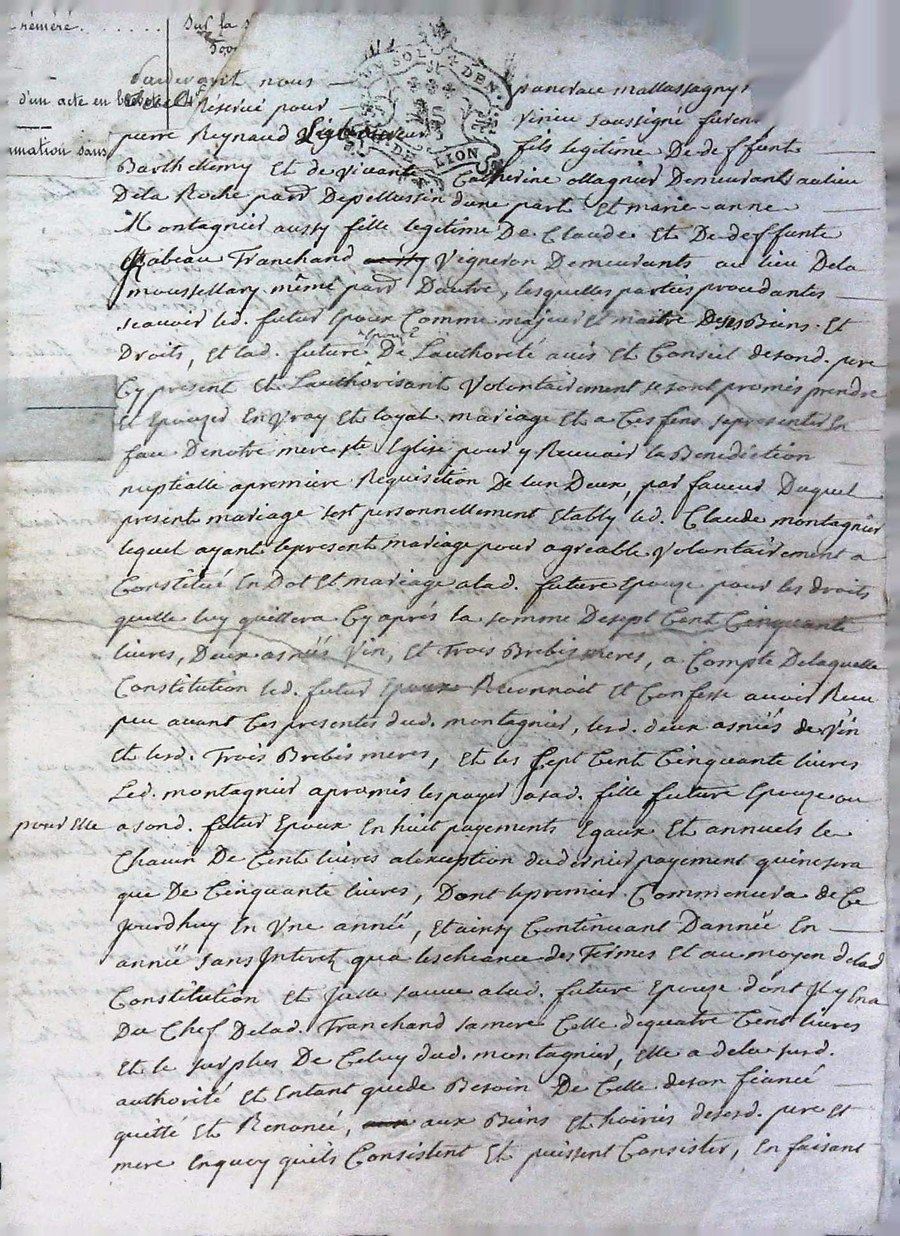 réméré. . . . . . .
Sur la
d'un acte en
mation sans
UN SOL DEN.
G. DE LION
Pardevant nous pancrace mallassagny
Reservé pour soussigné furent
pierre Reynaud fils legitime De deffunt
Barthelemy Et de vivante Catherine ollagnier Demeurants au lieu
Dela Roche parr. Depellussin dune part Et marie-anne
Montagnier aussy fille legitime De Claude Et De deffunte
Isabeau Tranchand Vigneron Demeurants au lieu Dela
même parr. Dautre, lesquelles parties procedantes
scavoir led. futur Epoux Comme majeur et maitre Deses Biens Et
Droits, Et lad. future Epouse De Lauthorité avis Et Conseil de sond. pere
Cy present Et Lauthorisant Volontairement se sont promis prendre
Et Epouzer En vray Et loyal mariage Et a Ces fins se presenter En
face De notre mere ste Eglise pour y Recevoir la Benediction
nuptialle a premiere Requisition De lun Deux, par faveur Duquel
present mariage sest personnellement Etably led. Claude montagnier
lequel ayant le present mariage pour agreable Volontairement a
Constitué En Dot Et mariage a lad. future Epouze pour les droits
quelle luy quittera Cy aprés la somme De sept Cent Cinquante
livres, Deux asnées Vin, Et Trois Brebis meres, a Compte De laquelle
Constitution led. futur Epoux Reconnoit Et Confesse avoir Receu
peu avant Ces presentes dud. montagnier, lesd. deux asnées de Vin
Et lesd. Trois Brebis meres, Et les Sept Cent Cinquante livres
Led. montagnier a promis les payer a sad. fille future Epouze ou
pour Elle a sond. futur Epoux En huit payements Egaux Et annuels de
Chacun De Cent livres a lexception du dernier payement qui ne sera
que De Cinquante livres, Dont le premier Commencera de Ce
Jourdhuy En Une année, Et ainsy Continuant Dannée En
année sans Interetz qua lescheance des Termes Et au moyen de lad
Constitution Et Jcelle sauve a lad. future Epouze dont Jl y En a
Du Chef De lad. Tranchand sa mere Celle de quatre Cent livres
Et le surplus De Celuy dud. montagnier, Elle a de la susd.
authorité Et Entant que de Besoin De Celle de son fiancé
quitté Et Renoncé, aux Biens Et hoiries de sesd. pere Et
mere En quoy quils Consistent Et puissent Consister, En faisant